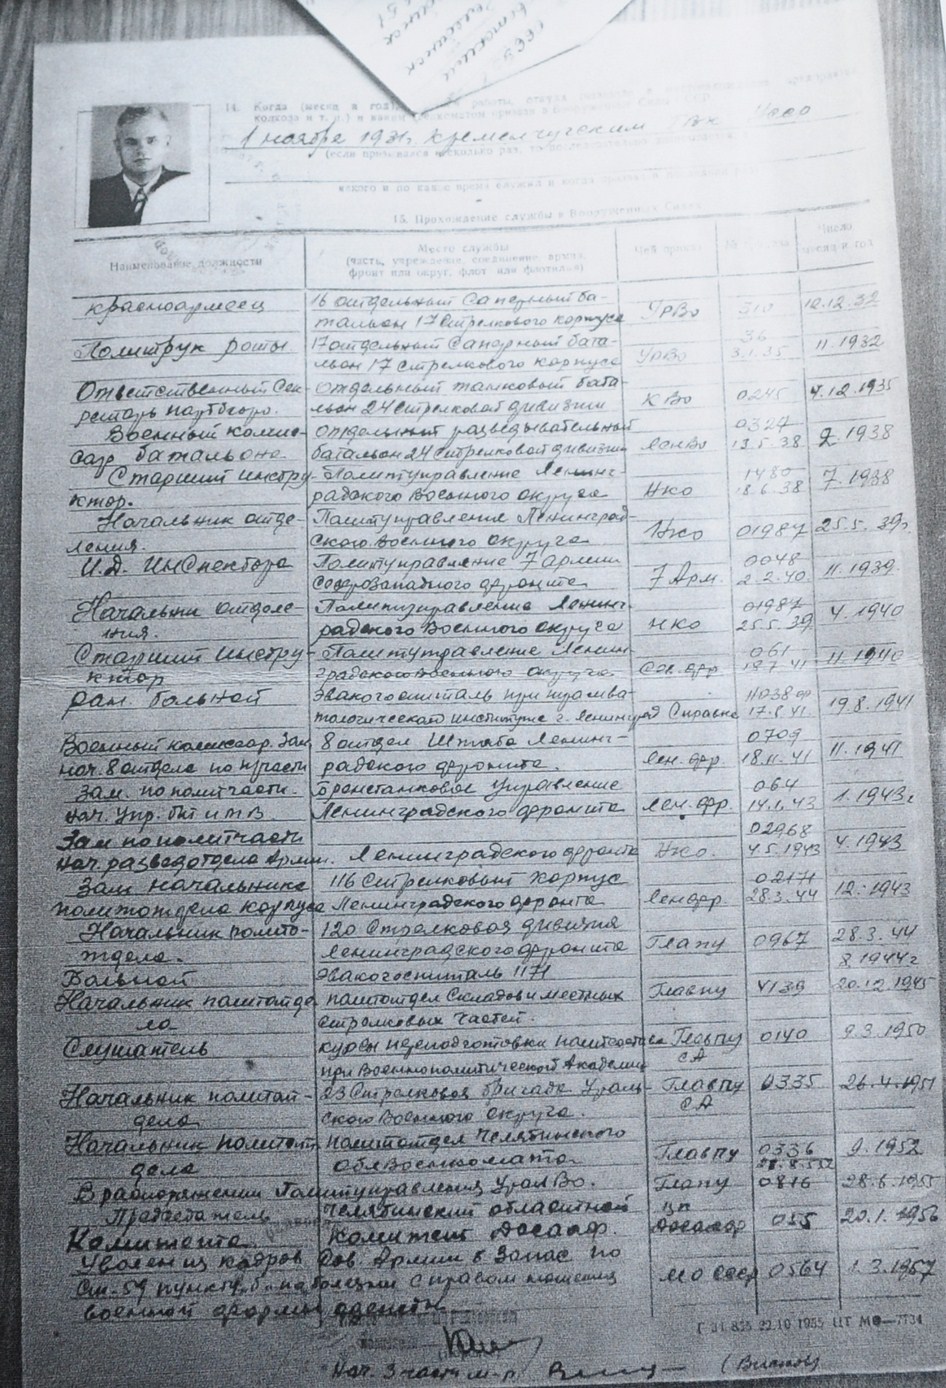 14. Когда (месяц и год)
1 ноября 1931г. Кременчугским
(если призывался несколько раз,
15. Прохождение службы в Вооруженных Силах
Наименование должности
Место службы
(часть, учреждение, соединение, армия,
фронт или округ, флот или флотилия)
Чей приказ
Число
месяц и год
Красноармеец
16 отдельный Саперный ба-
тальон 17 Стрелкового корпуса
УрВо
510
10.12.32
Политрук роты
17 отдельный Саперный бата-
льон 17 стрелкового корпуса
УрВо
36
3.1.35
11.1932
Ответственный Сек-
ретарь партбюро.
отдельный танковый бата-
льон 24 Стрелковой дивизии
КВо
0245
4.12.1935
Военный комис-
сар батальона
отдельный разведывательный
батальон 24 Стрелковой дивизии
ЛенВо
0327
13.5.38
2.1938
Старший инстру-
ктор.
Политуправление Ленинг-
радского Военного округа
НКО
1480
18.6.38
7.1938
Начальник отде-
ления.
Политуправление Ленинград-
ского Военного округа
НКО
01987
25.5.39г
И.Д. Инспектора
Политуправление 7 армии
Северозападного фронта
7 Арм.
0048
2.2.40
11.1939
Начальни отделе-
ния.
Политуправление Ленинг-
радского Военного округа
НКО
01987
25.5.39
4.1940
Старший инстру-
ктор
Политуправление Ленин-
градского Военного округа
Сев. фр
061
19.7.41
11.1940
ран. больной
Эвакогоспиталь при травма-
тологическом институте г. Ленинград
Справка
11038
17.8.41
19.8.1941
Военный комиссар. Зам
нач. 8 отдела по п/части
8 отдел Штаба Ленинг-
радского фронта.
Лен. фр.
0709
18.11.41
11.1941
Зам. по политчасти.
нач. Упр. бт и мв
Бронетанковое управление
Ленинградского фронта
Лен. фр.
064
14.1.43
1.1943г
Зам по политчасти
нач. разведотдела Армии.
Ленинградского фронта
НКО.
02968
4.5.1943
4.1943
Зам начальника
политотдела корпуса
116 Стрелковый Корпус
Ленинградского фронта
Ленфр.
02171
28.3.44
12.1943
Начальник полито-
тдела.
120 Стрелковая дивизия
Ленинградского фронта
Главпу
0967
28.3.44
Больной
Эвакогоспиталь 1171
8.1944г
Начальник политотде
ла
политотдел Складов и местных
стрелковых частей.
Главпу
4139
20.12.1945
Слушатель
курсы переподготовки политсостава
при Военнополитической Академии
Главпу
СА
0140
9.3.1950
Начальник политот-
дела
23 Стрелковая бригада Ураль-
ского Военного округа.
Главпу
СА
0335
26.4.1951
Начальник политот
дела
политотдел Челябинского
облвоенкомата
Главпу
0336
9.1952
В распоряжении Политуправления УралВо.
Главпу
0816
28.6.1955
Председатель
Комитета
Челябинский областной
Комитет Досааф.
ЦК
Досааф
035
20.1.1956
Уволен из кадров Сов. Армии в Запас по
Ст. 59 пункту "б" по болезни с правом ношения
военной формы одежды
МО СССР
0564
1.3.1957
Г 31 835 22.10 1955 ЦТ МО—7734
Нач. 3 части м-р